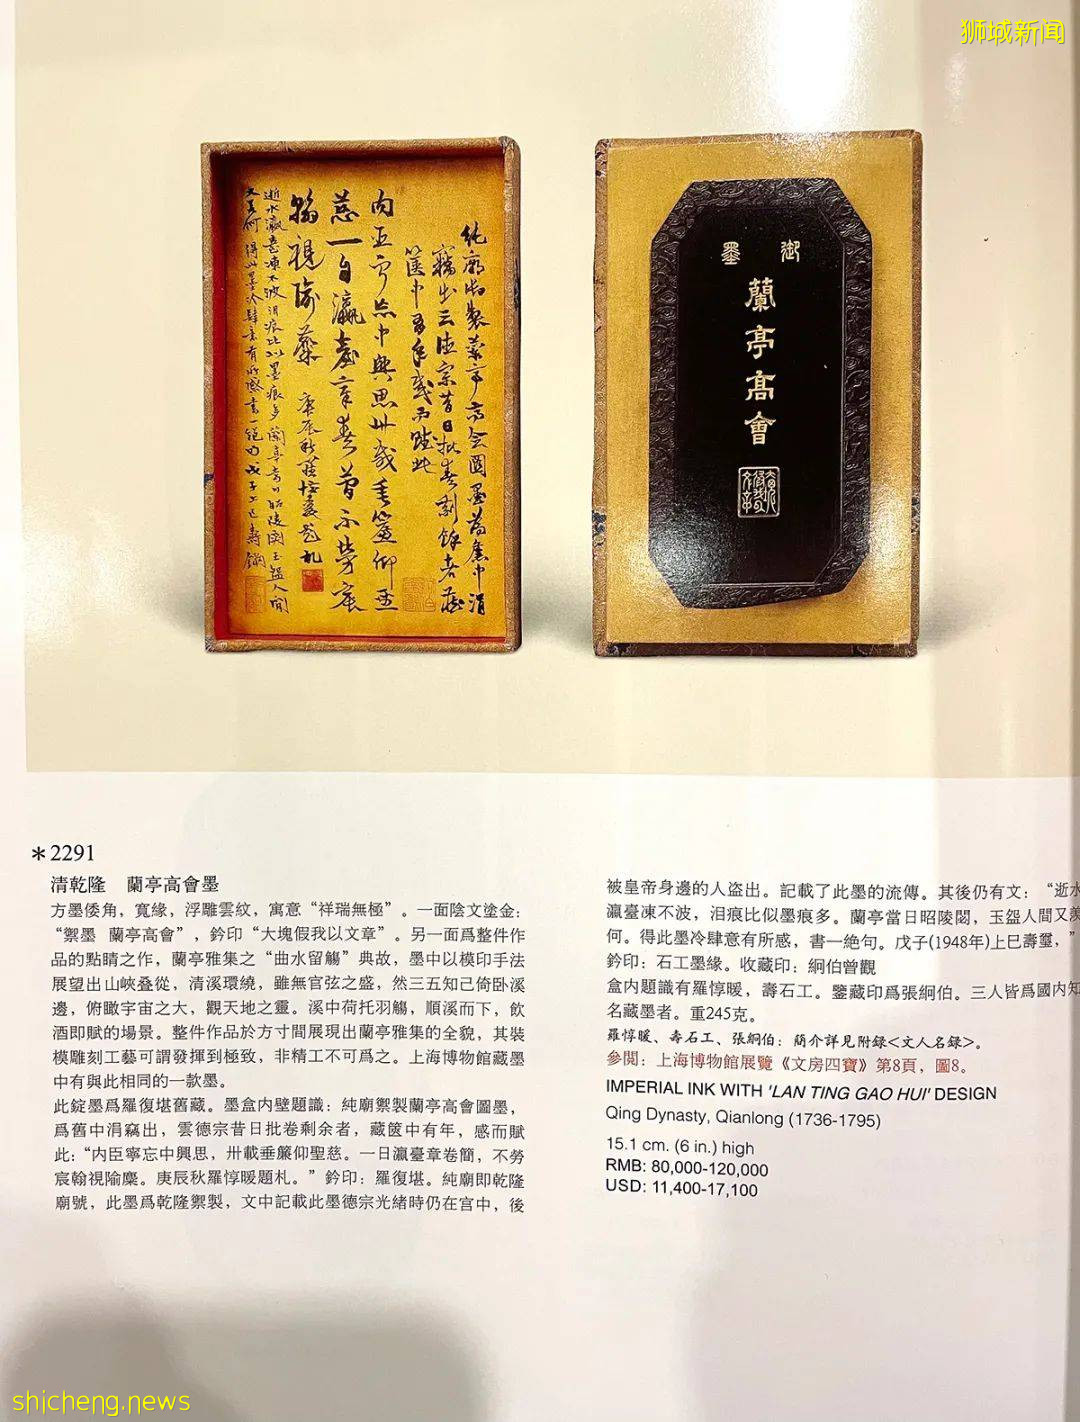 狮城新闻
純廟御製蘭亭高会圖墨為舊中涓
竊出云德宗昔日批卷剩餘者藏
篋中有年感而賦此
慈一自瀛臺章奏簡不勞宸
逝水瀛臺凍不波泪痕比似墨痕多蘭亭當日昭陵閟玉盌人間
御墨
蘭亭高會
＊2291
清乾隆　蘭亭高會墨
方墨倭角，寬緣，浮雕雲紋，寓意“祥瑞無極”。一面陰文塗金：
“禦墨 蘭亭高會”，鈐印“大塊假我以文章”。另一面爲整件作
品的點睛之作，蘭亭雅集之“曲水留觴”典故，墨中以模印手法
展望出山峽叠從，清溪環繞，雖無官弦之盛，然三五知己倚卧溪
邊，俯瞰宇宙之大，觀天地之靈。溪中荷托羽觴，順溪而下，飲
酒即賦的場景。整件作品於方寸間展現出蘭亭雅集的全貌，其裝
模雕刻工藝可謂發揮到極致，非精工不可爲之。上海博物館藏墨
中有與此相同的一款墨。
此錠墨爲羅復堪舊藏。墨盒内壁題識：純廟禦製蘭亭高會圖墨，
爲舊中涓竊出，雲德宗昔日批卷剩余者，藏篋中有年，感而賦
此：“内臣寧忘中興思，卅載垂簾仰聖慈。一日瀛臺章卷簡，不勞
宸翰視隃麋。庚辰秋羅惇暖題札。”鈐印：羅復堪。純廟即乾隆
廟號，此墨爲乾隆禦製，文中記載此墨德宗光緒時仍在宫中，後
被皇帝身邊的人盗出。記載了此墨的流傳。其後仍有文：“逝水
瀛臺凍不波，泪痕比似墨痕多。蘭亭當日昭陵閟，玉盌人間又羨
何。得此墨冷肆意有所感，書一絶句。戊子(1948年)上巳壽璽，”
鈐印：石工墨緣。收藏印：絅伯曾觀
盒内題識有羅惇暖，壽石工。鑒藏印爲張絅伯。三人皆爲國内知
名藏墨者。重245克。
羅惇暖、壽石工、張絅伯：簡介詳見附録<文人名録>。
參閲：上海博物館展覽《文房四寶》第8頁，圖8。
IMPERIAL INK WITH 'LAN TING GAO HUI' DESIGN
Qing Dynasty, Qianlong (1736-1795)
15.1 cm. (6 in.) high
RMB: 80,000-120,000
USD: 11,400-17,100
shicheng.news